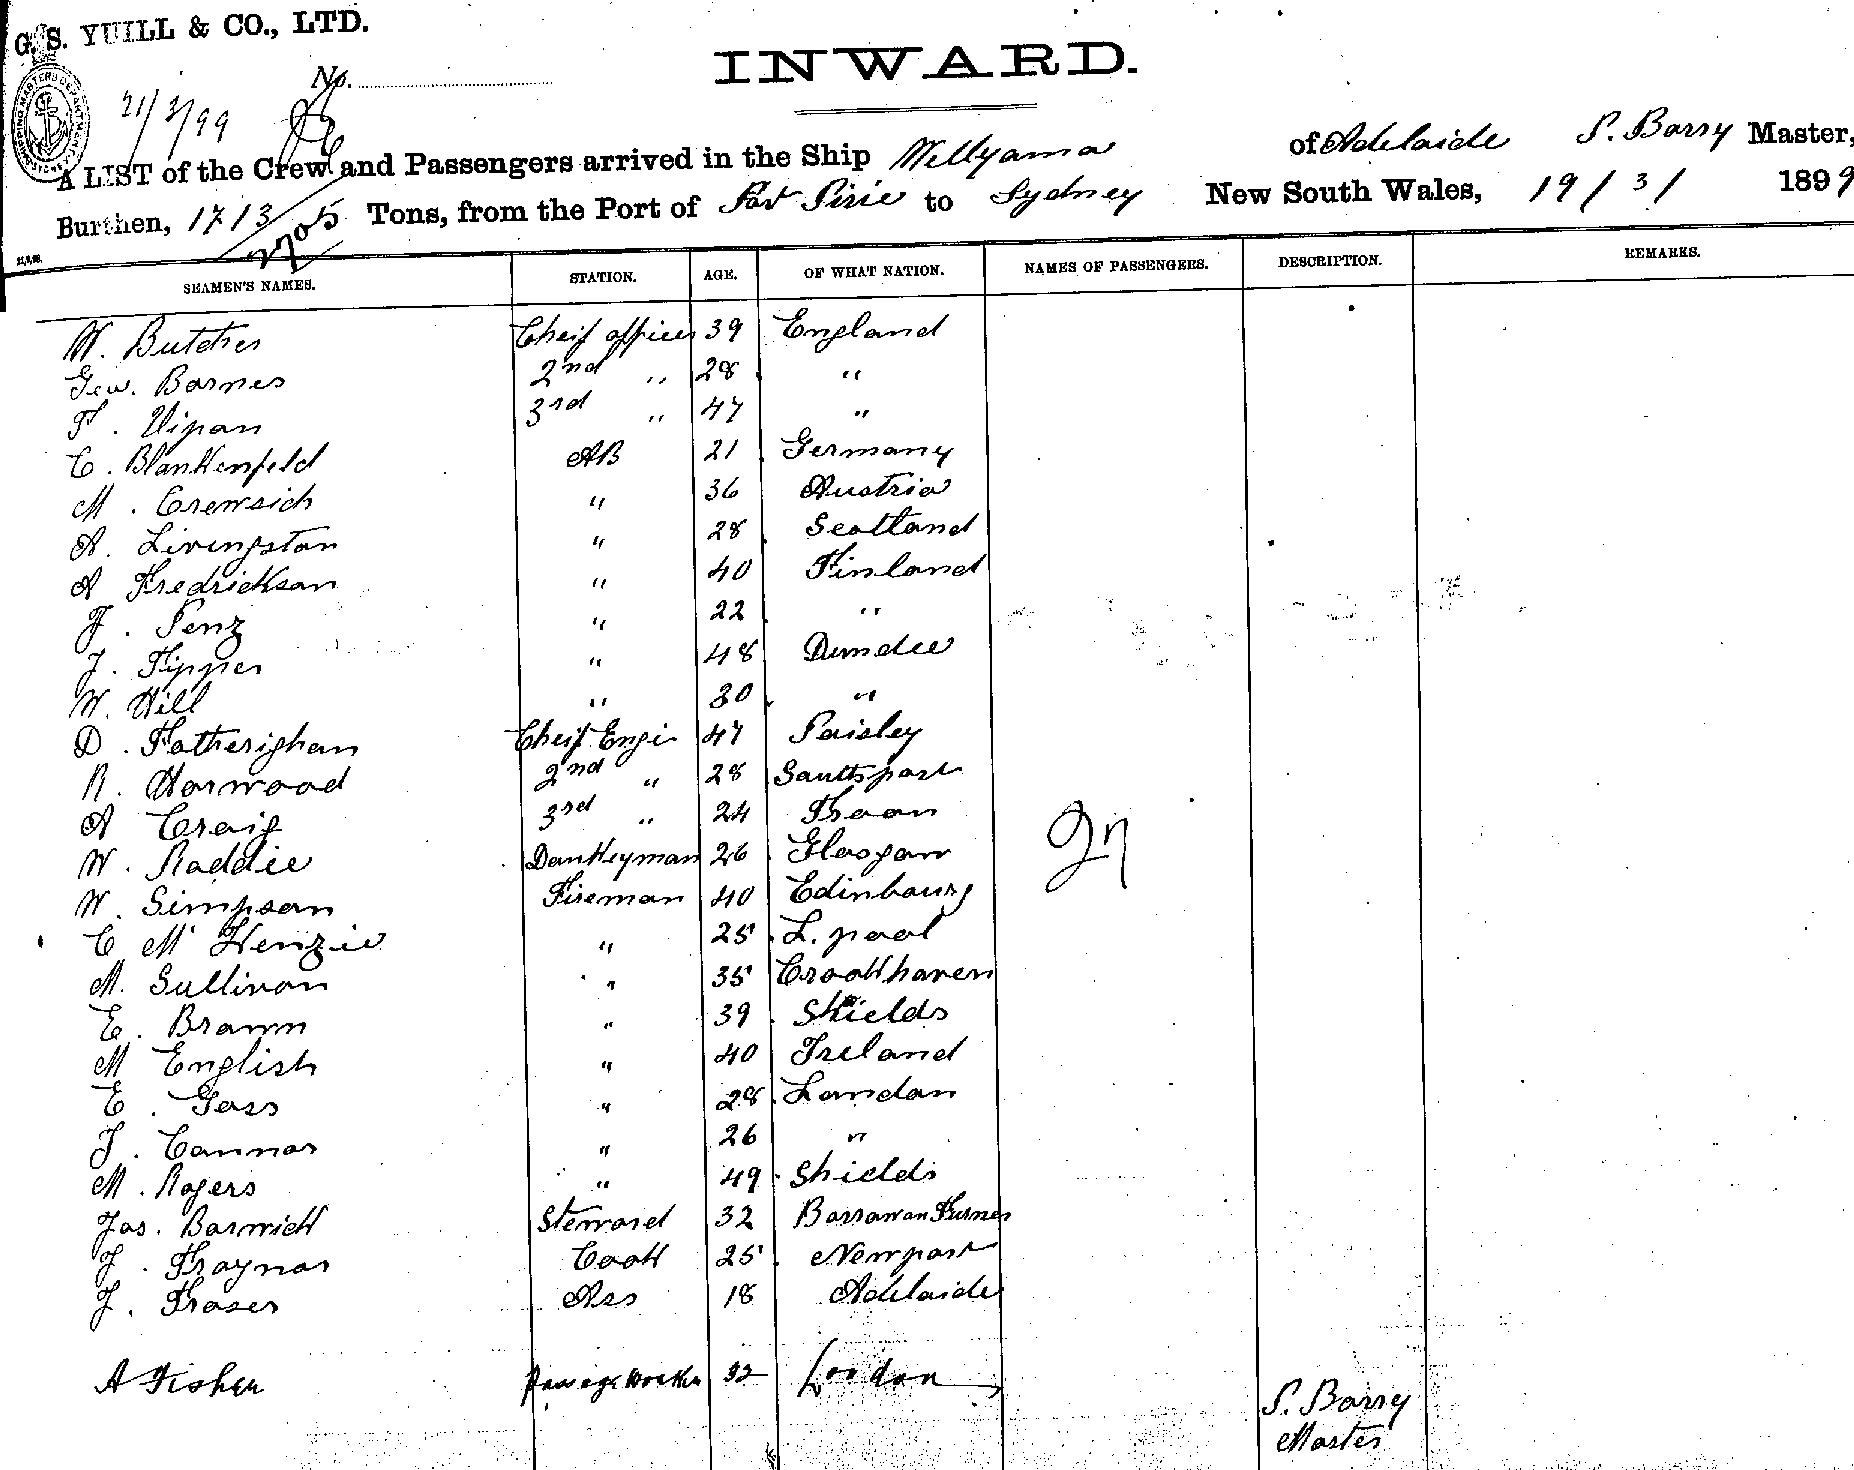 G. S. YUILL & CO., LTD.
INWARD.
No.
21/3/99
A LIST of the Crew and Passengers arrived in the Ship Willyama of Adelaide P. Barry Master,
Burthen, 1713/2705 Tons, from the Port of Port Pirie to Sydney New South Wales, 19/3/ 1899
SEAMEN'S NAMES. STATION. AGE. OF WHAT NATION. NAMES OF PASSENGERS. DESCRIPTION. REMARKS.
W. Butcher Cheif officer 39 England
Geo. Barnes 2nd " 28 "
F. Vipan 3rd " 47 "
C. Blankenfeld AB 21 Germany
M. " 36 Austria
A. Livingston " 28 Scotland
A Fredrickson " 40 Finland
J. Penz " 22 "
J. Tipper " 48 Dundee
W. Hill " 30 "
D. Fotherigham Cheif Engi 47 Paisley
R. Horwood 2nd " 28 Southport
A Craig 3rd " 24 Troon
W. Raddie Donkeyman 26 Glasgow
W. Simpson Fireman 40 Edinbourg
C McKenzie " 25 L.pool
M. Sullivan " 35 Crookhaven
E. Brown " 39 Shields
M English " 40 Ireland
E. Goss " 28 London
J. Connor " 26 "
M. Rogers " 49 Shields
Jas. Barwick Steward 32 Barrowon Furnes
J. Traynor Cook 25 Newport
J. Fraser Ass 18 Adelaide
A Fisher Passage Worker 32 London
27
P. Barry
Master